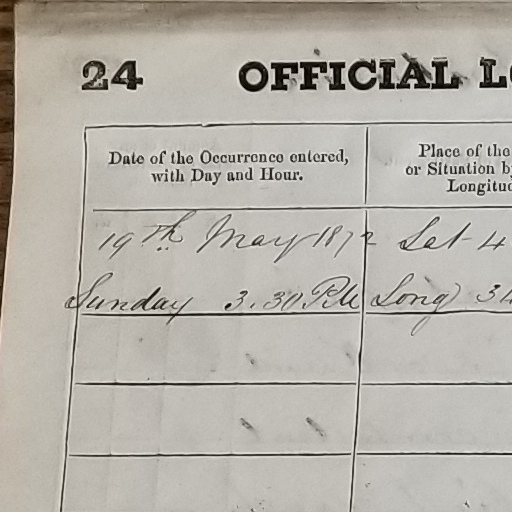 24 OFFICIAL L
Date of the Occurrence entered,
with Day and Hour.
Place of the
or Situation b
Longitud
19th May 1872 Lat 4
Sunday 3.30 PM Long 31